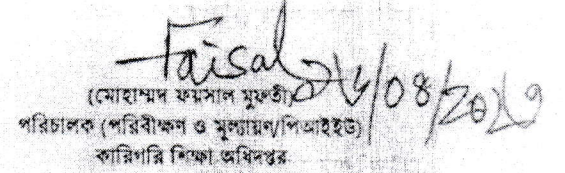 Faisal
(মোহাম্মদ ফয়সাল মুফতী)
পরিচালক (পরিবীক্ষণ ও মূল্যায়ন/পিআইইউ)
কারিগরি শিক্ষা অধিদপ্তর